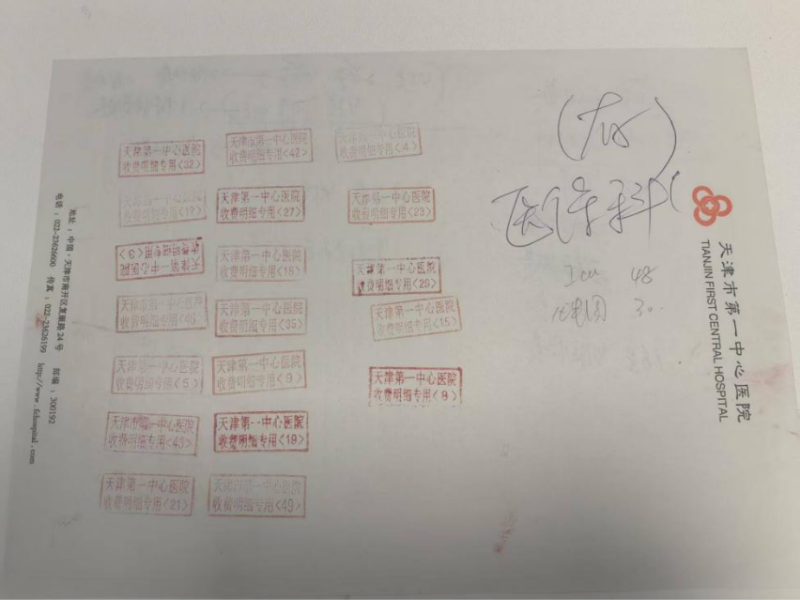 天津第一中心医院
收费明细专用<32>
天津市第一中心医院
收费明细专用<42>
天津市第一中心医院
收费明细专用<4>
天津第一中心医院
收费明细专用<17>
天津第一中心医院
收费明细专用<27>
天津第一中心医院
收费明细专用<23>
天津第一中心医院
收费明细专用<3>
天津第一中心医院
收费明细专用<16>
天津第一中心医院
收费明细专用<26>
天津市第一中心医院
天津第一中心医院
收费明细专用<35>
天津第一中心医院
收费明细专用<15>
天津第一中心医院
收费明细专用<5>
天津第一中心医院
收费明细专用<9>
天津第一中心医院
收费明细专用<8>
天津市第一中心医院
收费明细专用<43>
天津第一中心医院
收费明细专用<18>
天津第一中心医院
收费明细专用<21>
天津市第一中心医院
收费明细专用<49>
医保科
Icu 48
30
天津市第一中心医院
TIANJIN FIRST CENTRAL HOSPITAL
地址：中国·天津市南开区复康路24号 邮编：300192
电话：022-23626600 传真：022-23626199 http://www.fchospital.com